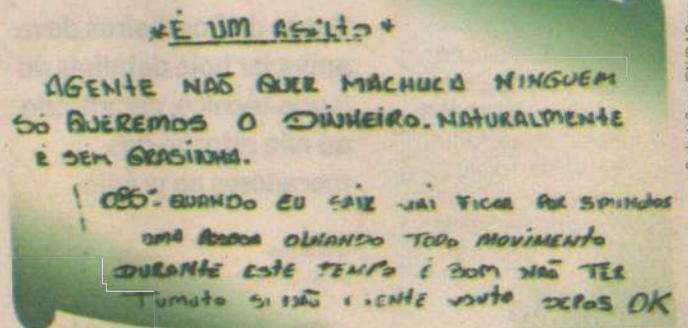 *É UM ASALTO*
AGENTE NAÕ QUER MACHUCA NINGUEM
SO QUEREMOS O DINHEIRO. NATURALMENTE
E SEM GRASINHA.
OBS: QUANDO EU SAIR VAI FICAR POR 5 MINUTOS
UMA PESSOA OLHANDO TODO MOVIMENTO
DURANTE ESTE TEMPO É BOM NAÕ TER
TUMUTO SI NAÕ A GENTE VOUTO DEPOS OK